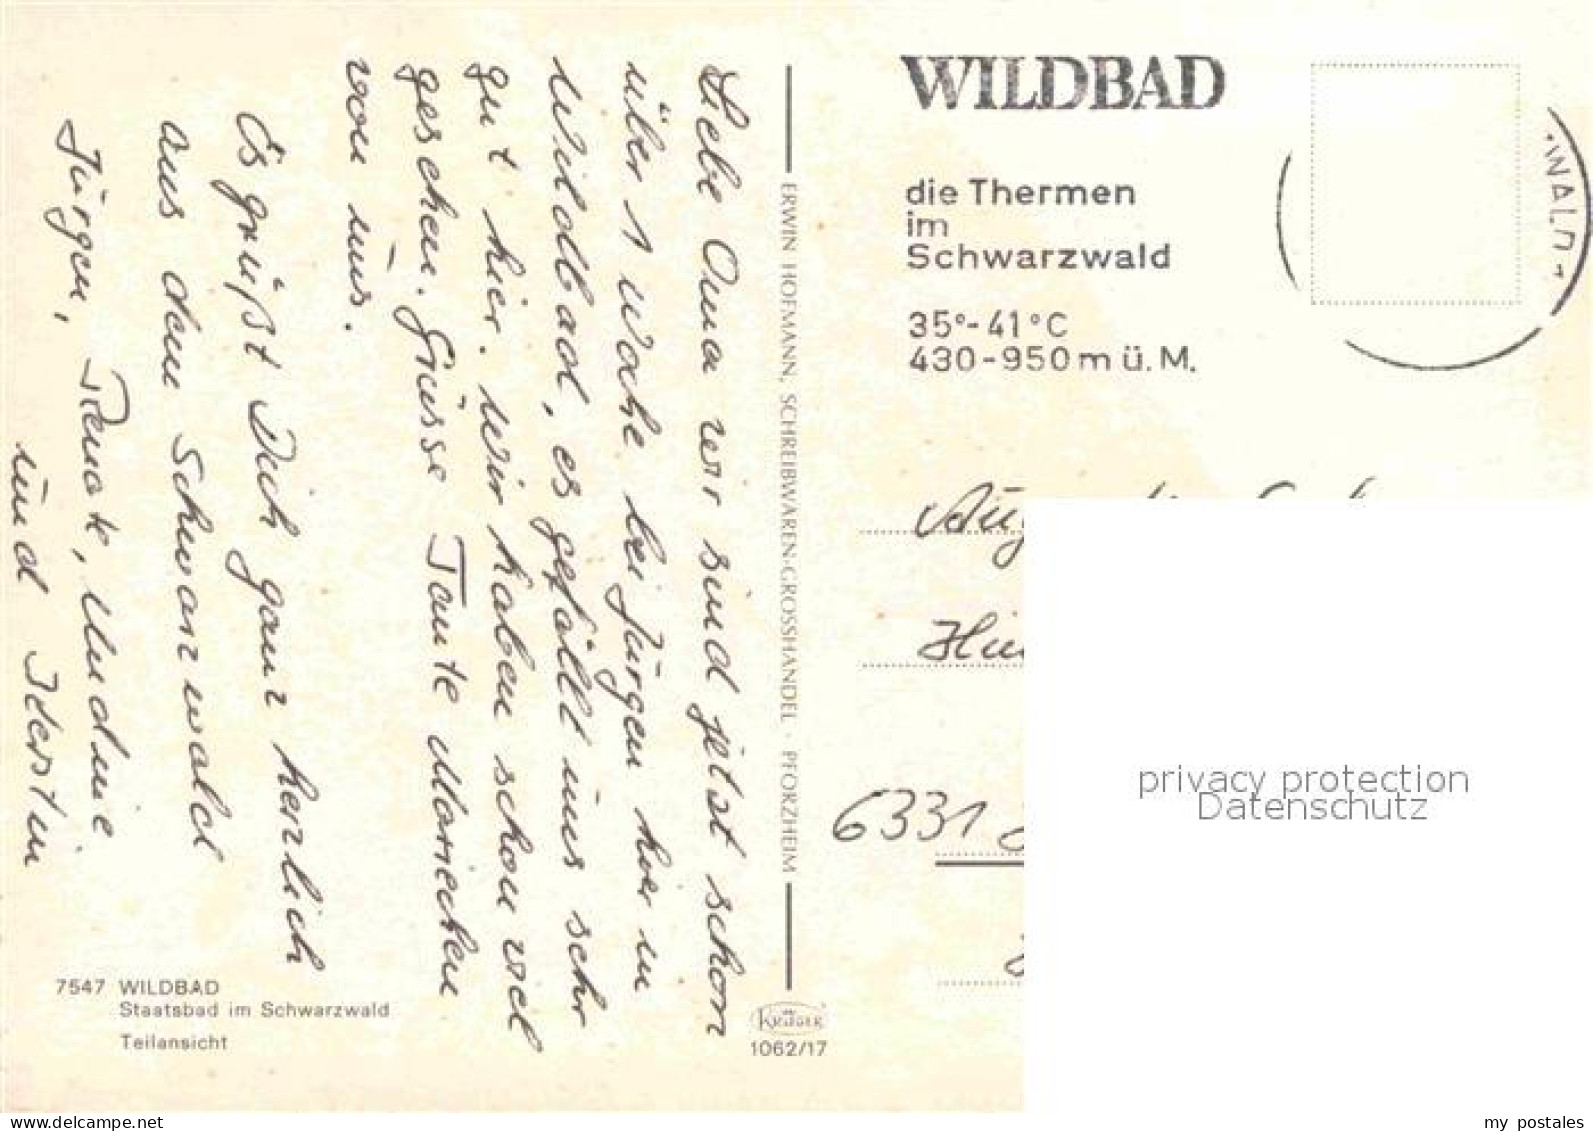 WILDBAD
die Thermen
im
Schwarzwald
35°-41°C
430-950 m ü. M.
Liebe Oma wir sind jetzt schon
über 1 Woche bei Jürgen hier in
Wildbad, es gefällt uns sehr
gut hier. Wir haben schon viel
gesehen. Grüsse Tante Mariechen
von uns.
Es grüßt Dich ganz herzlich
aus dem Schwarzwald
Jürgen, Renate,
und Kerstin
ERWIN HOFMANN, SCHREIBWAREN-GROSSHANDEL · PFORZHEIM
6331
7547 WILDBAD
Staatsbad im Schwarzwald
Teilansicht
KRÜGER
1062/17
privacy protection
Datenschutz
www.delcampe.net
my_postales